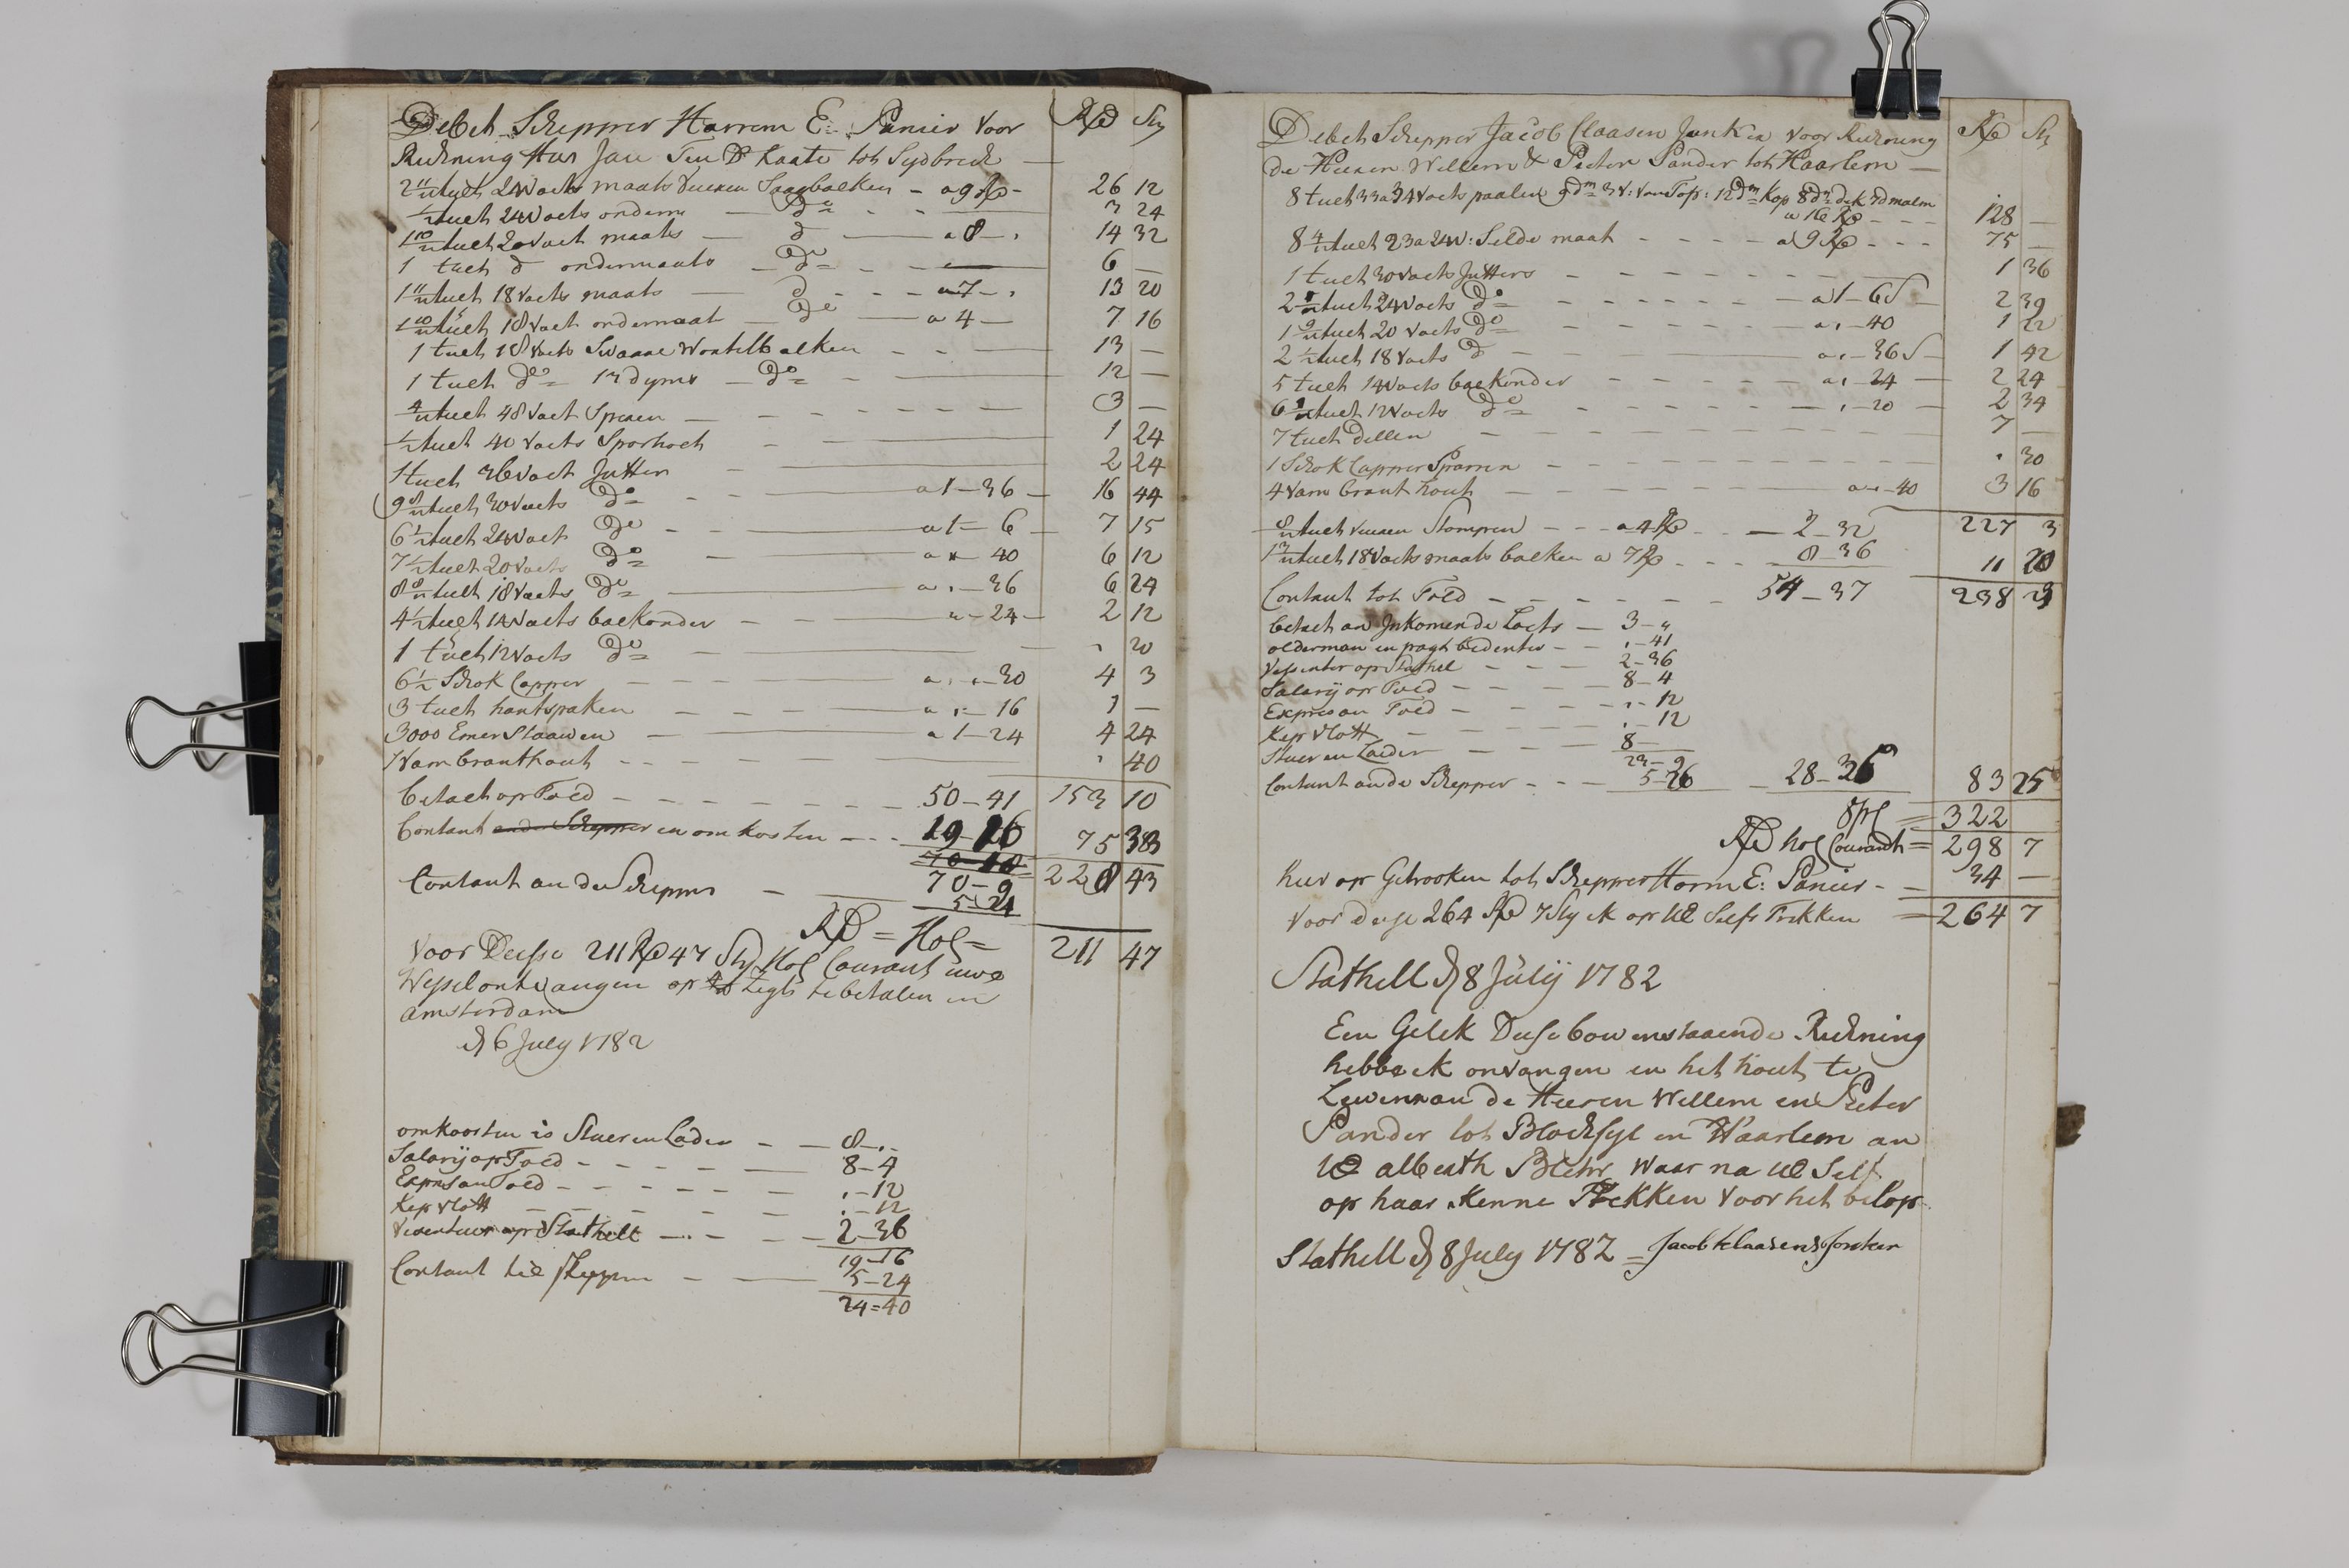 Debet Schipper Harrem E: Panier Voor Rd Sty
Rickning Hær Jan Ten Kaate tot Sydbreck —
2 11/12 tuch 24 Voets maats Vueren Saagbalken — a 9 Rd — 26 12
1/2 tuch 24 Voets onderm — do — 3 24
1 10/12 tuch 20 Voet maats — d — a 8 — 14 32
1 tuch d ondermaats — do — 6 —
1 11/12 tuch 18 Voets maats — d — a 7 — 13 20
1 10/12 tuch 18 Voet ondermaat — do — a 4 — 7 16
1 tuch 18 Voets Swaare Wortelbalken — 13 —
1 tuch do 13 dyms — do — 12 —
4/12 tuch 48 Voet Spieren — 3 —
1/2 tuch 40 Voets Sporhoet — 1 24
1 tuch 36 Voet Jutten — 2 24
9 8/12 tuch 30 Voets do — a 1 — 36 — 16 44
6 1/2 tuch 24 Voet do — a 1 — 6 — 7 15
7 1/2 tuch 20 Voets do — a — 40 6 12
8 8/12 tuch 18 Voets do — a — 36 6 24
4 1/2 tuch 14 Voets boekonder — a — 24 — 2 12
1 tuch 12 Voets do — 20
6 1/2 Schok Capper — a — 30 4 3
3 tuch hantspaken — a — 16 1 —
3000 Emer Staawen — a 1 — 24 4 24
1 Vam branthout — 40
betaelt op Foed — 50 — 41 153 10
Contant ander Schepper en omkosten — 19 — 16 75 33
70 — 10
70 — 9 228 43
Contant an der Schepper — 5 — 24
Rd = Hol =
Voor Deese 211 Rd 47 Sty Hol Courant uwe 211 47
Wessel ontvangen op zegt te betalen in
Amsterdam
d 6 July 1782
omkoosten is Stuer en Laden — 8 —
Salarij op Foed — 8 — 4
Expres an Foed — 12
Kep Vlott — 12
Visenteur op Stathelt — 2 — 36
19 — 16
Contant til Skepper — 5 — 24
24 = 40
Debet Schipper Jacob Claasen Junker Voor Rickning Rd Sty
de Heeren Willem & Pieter Sander tot Haarlem —
8 tuch 33 a 34 Voets paalen 9 dm 3 V: van Top: 12 dm Kop 8 dm dek 7 d malm
a 16 Rd — 128 —
8 4/12 tuch 23 a 24 V: Selde maat — a 9 Rd — 75 —
1 tuch 30 Voets Jutters — 1 36
2 tuch 24 Voets do — a 1 — 6 S — 2 39
1 9/12 tuch 20 Voets do — a — 40 1 22
2 1/2 tuch 18 Voets d — a — 36 S — 1 42
5 tuch 14 Voets boekonder — a — 24 — 2 24
6 tuch 12 Voets do — 20 — 2 34
7 tuch Dellen — 7 —
1 Schok Capper Sparren — 30
4 Vam brant hout — a — 40 3 16
8/12 tuch vueren Stompen — a 4 Rd — 2 — 32 227 3
1 3/12 tuch 18 Voets maats balken a 7 Rd — 8 — 36 11 20
Contant tot Foed — 54 — 37 238 23
betaelt an Inkomende Laets — 3 —
olderman en pragt bedientes — 41
Visenter op Stathel — 2 — 36
Salarij op Foed — 8 — 4
Expres an Foed — 12
Kep Vlott — 12
Stuer en Laden — 8 —
23 — 9
Contant an de Schepper — 5 — 26 28 — 35 83 25
322
Rd hol Courandt = 298 7
hier op Getrooken tot Schepper Harm E: Panier — 34 —
Voor dese 264 Rd 7 Sty ik op UE Selfs Trekken = 264 7
Stathell d 8 Julij 1782
Een Gelek Dese bowenstaaende Rickning
hebbe ek onvangen en het hout te
Lewern an de Heeren Willem en Pieter
Sander tot Blocksyl en Haarlem an
UE albeath Blehr waar na UE Self
op haar kenne Trekken voor het belop
Stathell d 8 July 1782 = Jacob klaasens Jonker